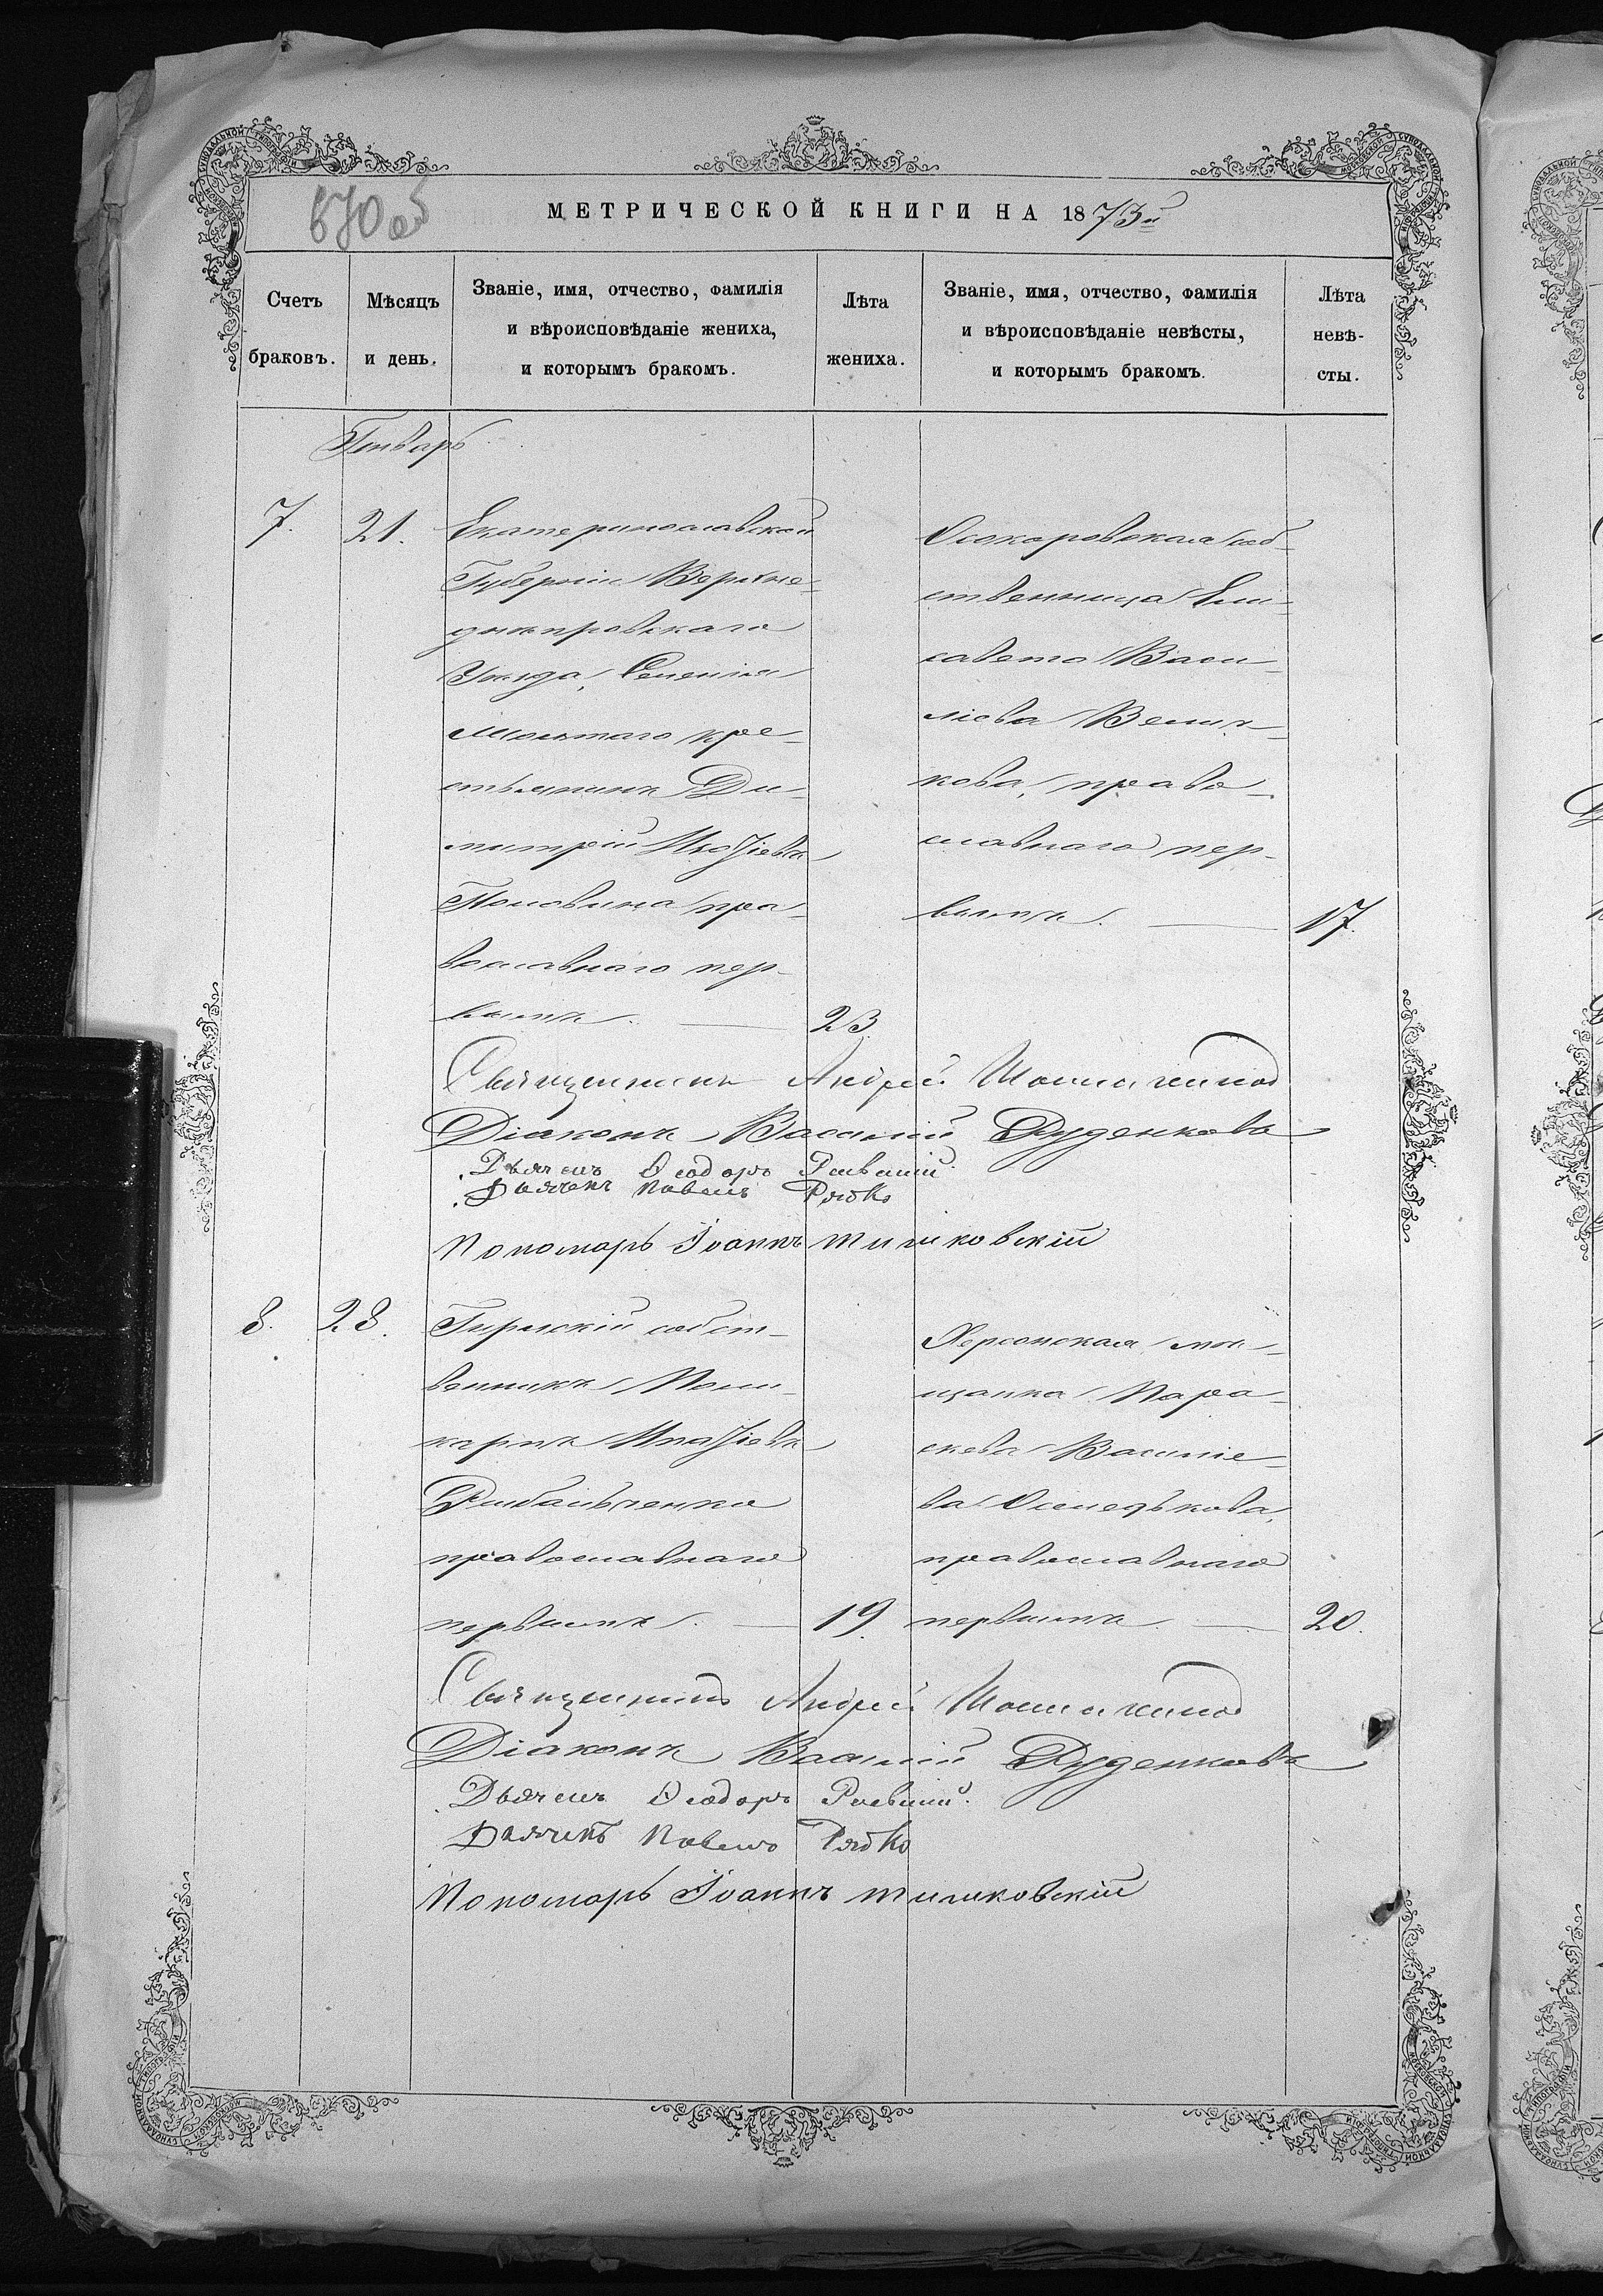 670 об
МЕТРИЧЕСКОЙ КНИГИ НА 1873й
Счетъ браковъ.
Мѣсяцъ и день.
Званіе, имя, отчество, фамилія
и вѣроисповѣданіе жениха,
и которымъ бракомъ.
Лѣта жениха.
Званіе, имя, отчество, фамилія
и вѣроисповѣданіе невѣсты,
и которымъ бракомъ.
Лѣта невѣ-
сты.
Генварь
7. 21.
Екатеринославской
Губерніи Верхне-
днѣпровскаго
Уѣзда, Селенія
Жолтаго кре-
стьянинъ Ди-
митрій
Половина пра-
вославнаго пер-
вымъ. — 23.
Осокоровская соб-
ственница Ели-
савета Васи-
ліева Велич-
кова, право-
славнаго пер-
вымъ. — 17.
Священникъ Андрей
Діаконъ Василій Руденковъ
Дьячекъ Ѳеодоръ Раевскій.
Дьячекъ Павелъ Рябко
Пономарь Іоаннъ
8. 28.
Гирлскій собст-
венникъ Поли-
карпъ
Рибальченко
православнаго
первымъ. — 19.
Херсонская мѣ-
щанка Пара-
скева Василіе-
ва
православнаго
первымъ — 20.
Священникъ Андрей
Діаконъ Василій Руденковъ
Дьячекъ Ѳеодоръ Раевскій.
Дьячекъ Павелъ Рябко
Пономарь Іоаннъ